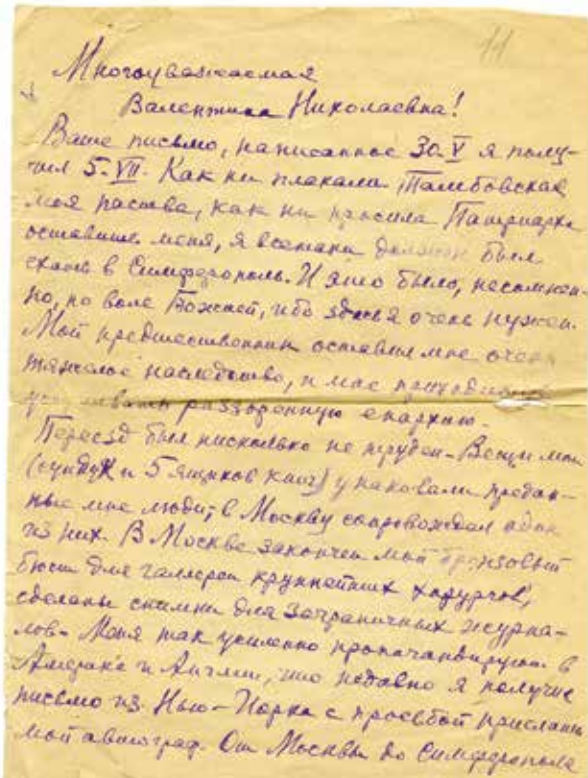 11
Многоуважаемая
Валентина Николаевна!
Ваше письмо, написанное 30.V я полу-
чил 5.VII. Как ни плакала Тамбовская
моя паства, как ни просила Патриарха
оставить меня, я всетаки должен был
ехать в Симферополь. И это было, несомнен-
но, по воле Божией, ибо здесь я очень нужен.
Мой предшественник оставил мне очень
тяжелое наследство, и мне приходится
разоренную епархию.
Переезд был нисколько не труден. Вещи мои
(сундук и 5 ящиков книг) упаковали предан-
ные мне люди; в Москву сопровождал один
из них. В Москве закончен мой бронзовый
бюст для галлереи крупнейших хирургов,
сделаны снимки для заграничных журна-
лов. Меня так усиленно пропагандируют в
Америке и Англии, что недавно я получил
письмо из Нью-Йорка с просьбой прислать
мой автограф. От Москвы до Симферополя